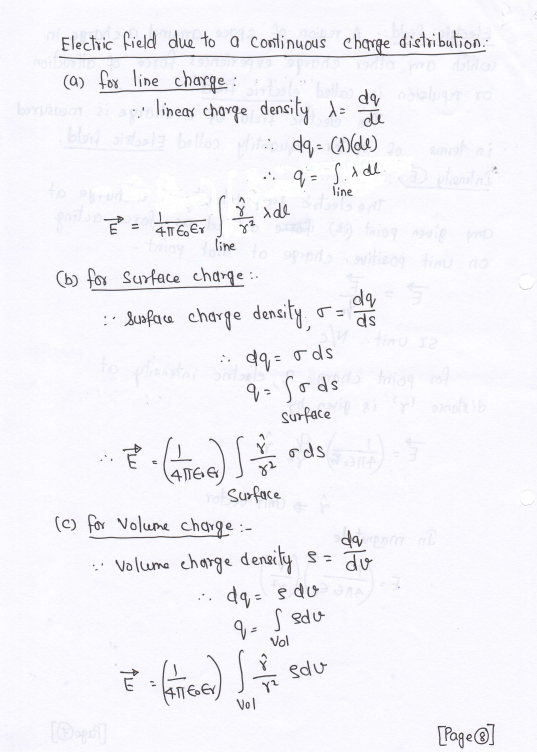 Electric field due to a continuous charge distribution:-
(a) for line charge:
∵ linear charge density λ = dq/dl
∴ dq = (λ)(dl)
∴ q = ∫ λ dl
line
E⃗ = 1/4πε₀εr ∫ r̂/r² λ dl
line
(b) for Surface charge:-
∵ surface charge density, σ = dq/ds
∴ dq = σ ds
q = ∫ σ ds
surface
∴ E⃗ = (1/4πε₀εr) ∫ r̂/r² σ ds
Surface
(c) for Volume charge:-
∵ Volume charge density ρ = dq/dv
∴ dq = ρ dv
q = ∫ ρdv
Vol
E⃗ = (1/4πε₀εr) ∫ r̂/r² ρdv
Vol
[Page 8]